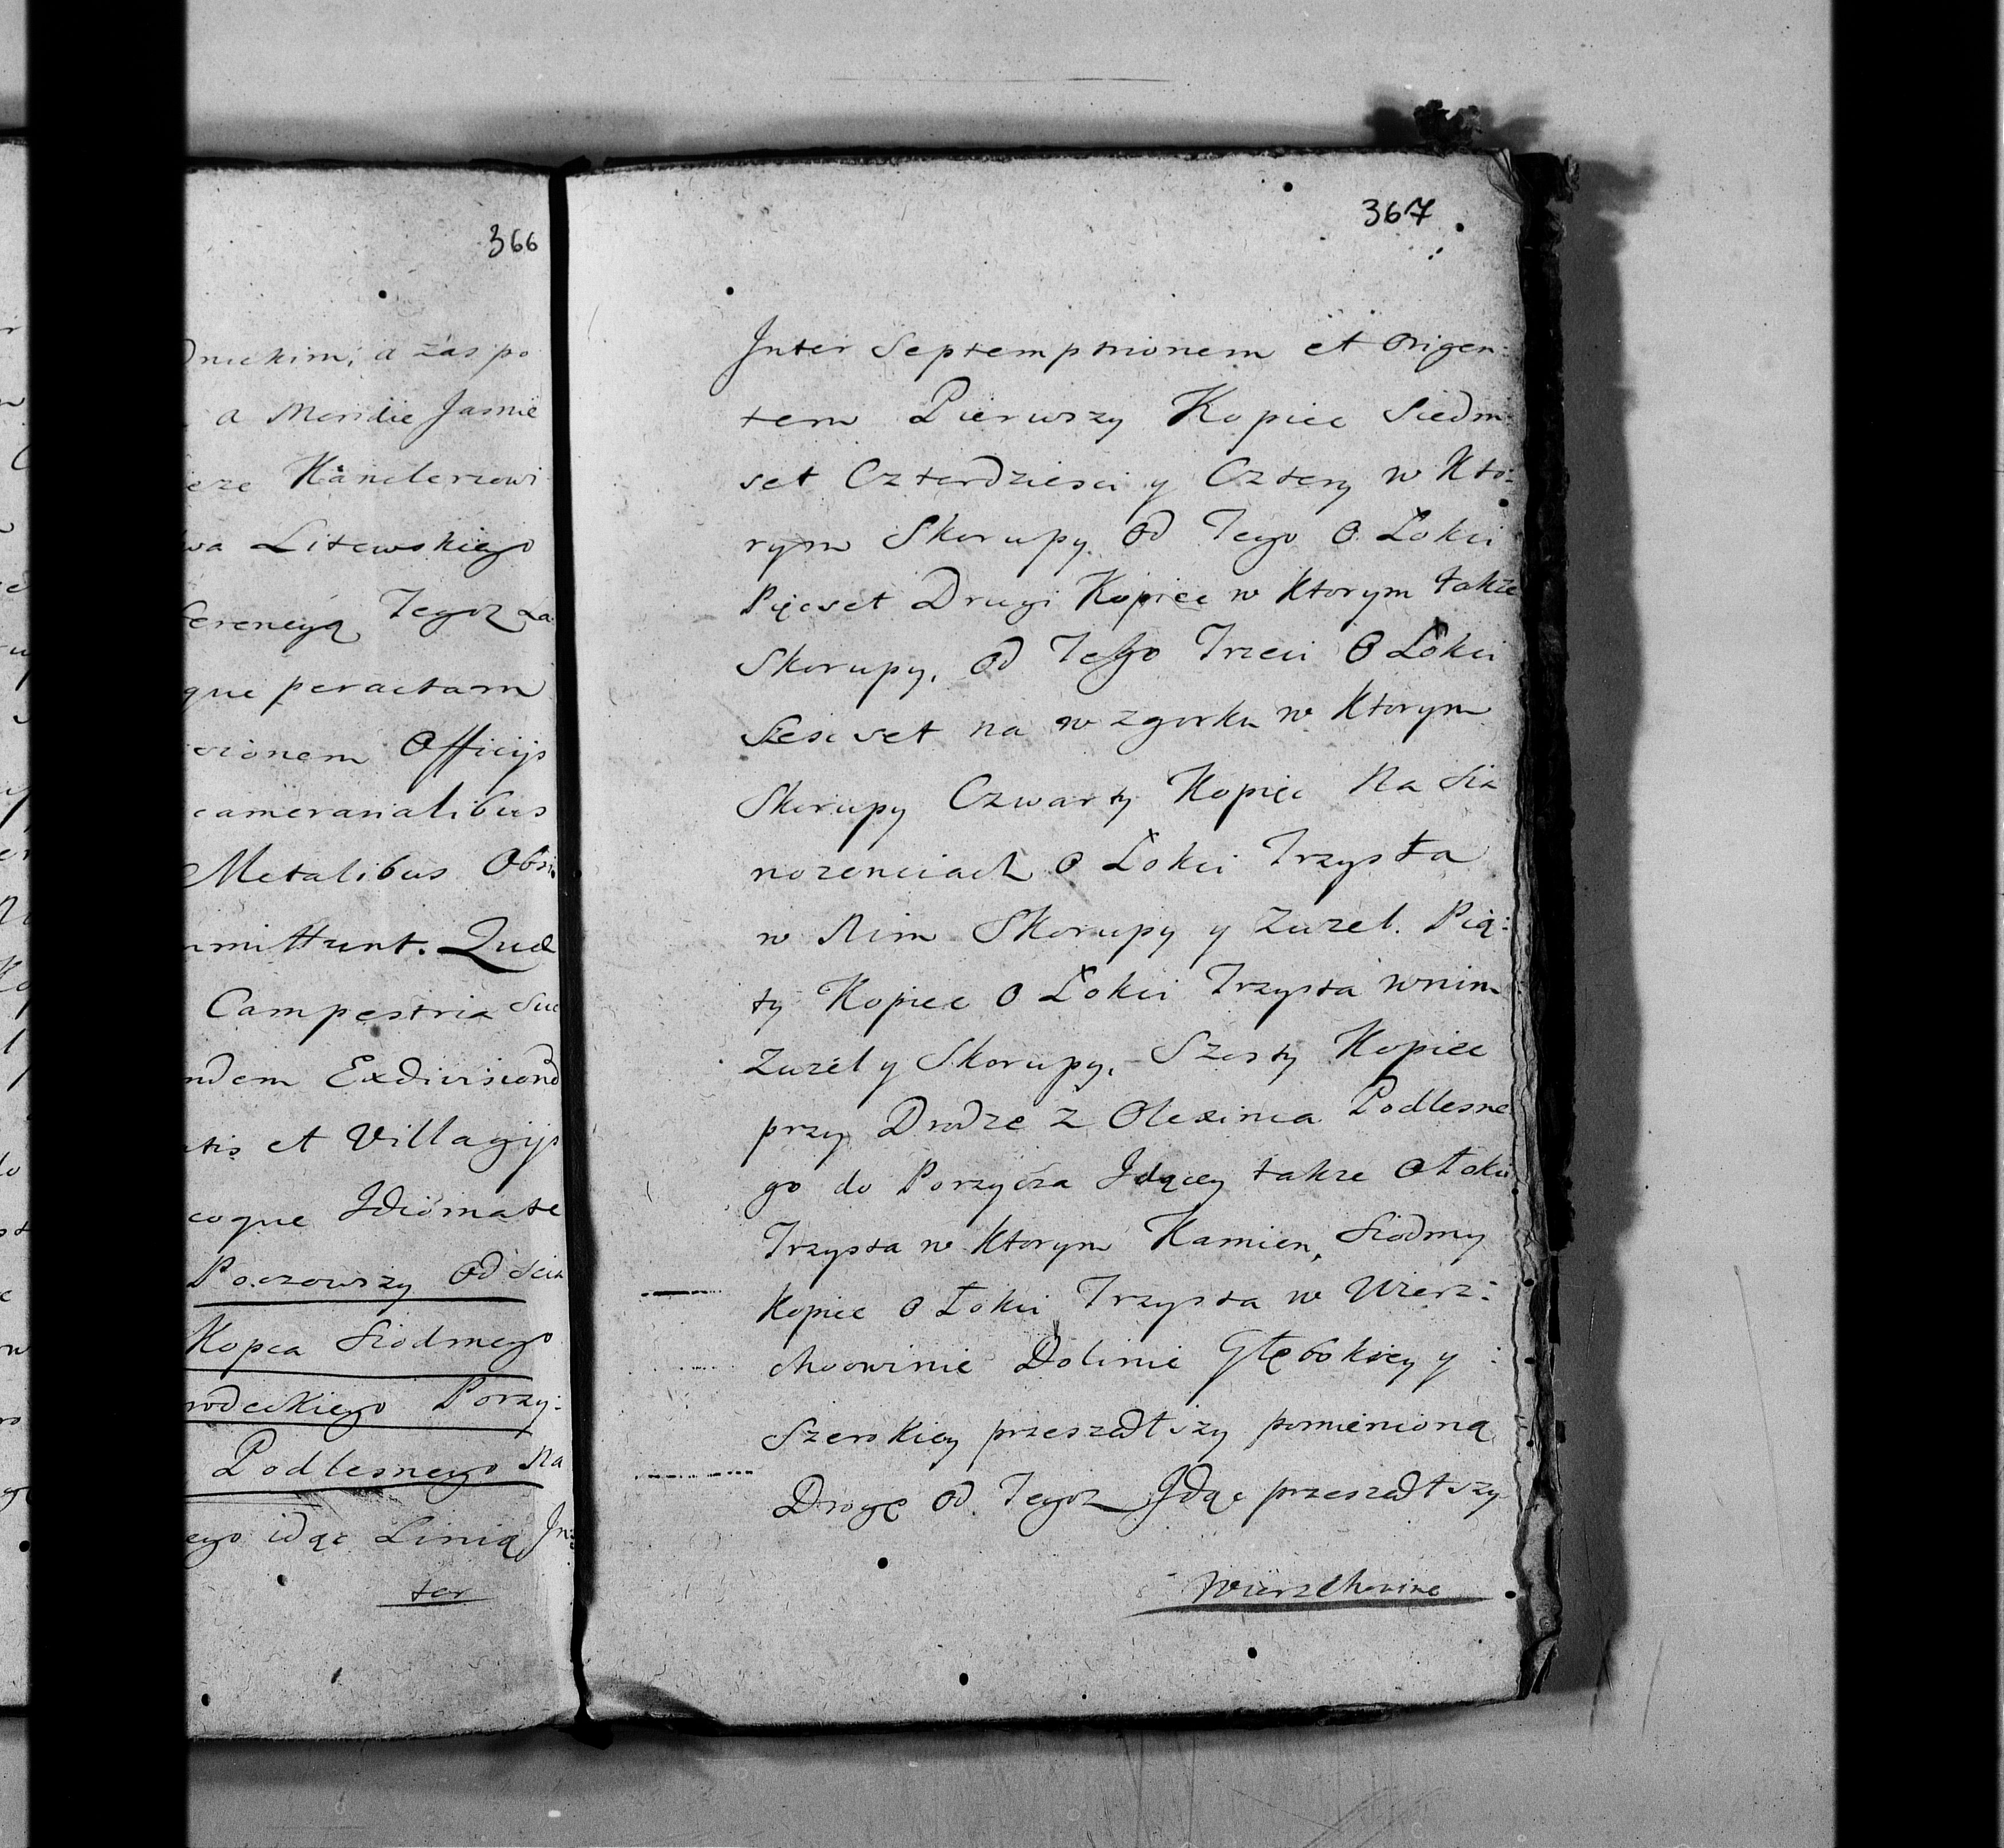 366
Dnickim; a zas po
a Meridie Jasnie
Kanclerzowi
wa Litewskiego
ferencyą Tegoz La
que peractam
cionem Officijs
cameranalibus
Metalibus Obs
mmittunt. Quæ
Campestria suc
ndem Exdivisiond
atis et Villagijs
coque Idiomate
Poczowszy Od
Kopca Siodmego
rodeckiego Porzy:
Podlesnego Na
ego idąc Linią Jn:
ter
367
Jnter Septemptrionem et Origen:
tem Pierwszy Kopiec Siedm
set Czterdziesci y Cztery w Kto:
rym Skorupy. Od Tego O Łokci
Pięcset Drugi Kopiec w Ktorym także
Skorupy, Od Tego Trzeci O Łokci
Sescset na wzgorku w Ktorym
Skorupy Czwarty Kopiec Na Sia
nozenciach O Łokci Trzysta
w Nim Skorupy y Zuzel. Pią:
ty Kopiec O Łokci Trzysta wnim
Zuzel y Skorupy, Szosty Kopiec
przy Drodze z Olexinca Podlesne
go do Porzycza Jdącey takze O Łokci
Trzysta w Ktorym Kamien, Siodmy
Kopiec O Łokci Trzysta w Wierz:
chowinie Dolinie Głębokiey y
Szerokiey przeszedłszy pomienioną
Drogę Od Tegoz Jdąc przeszedłszy
Wierzchowine